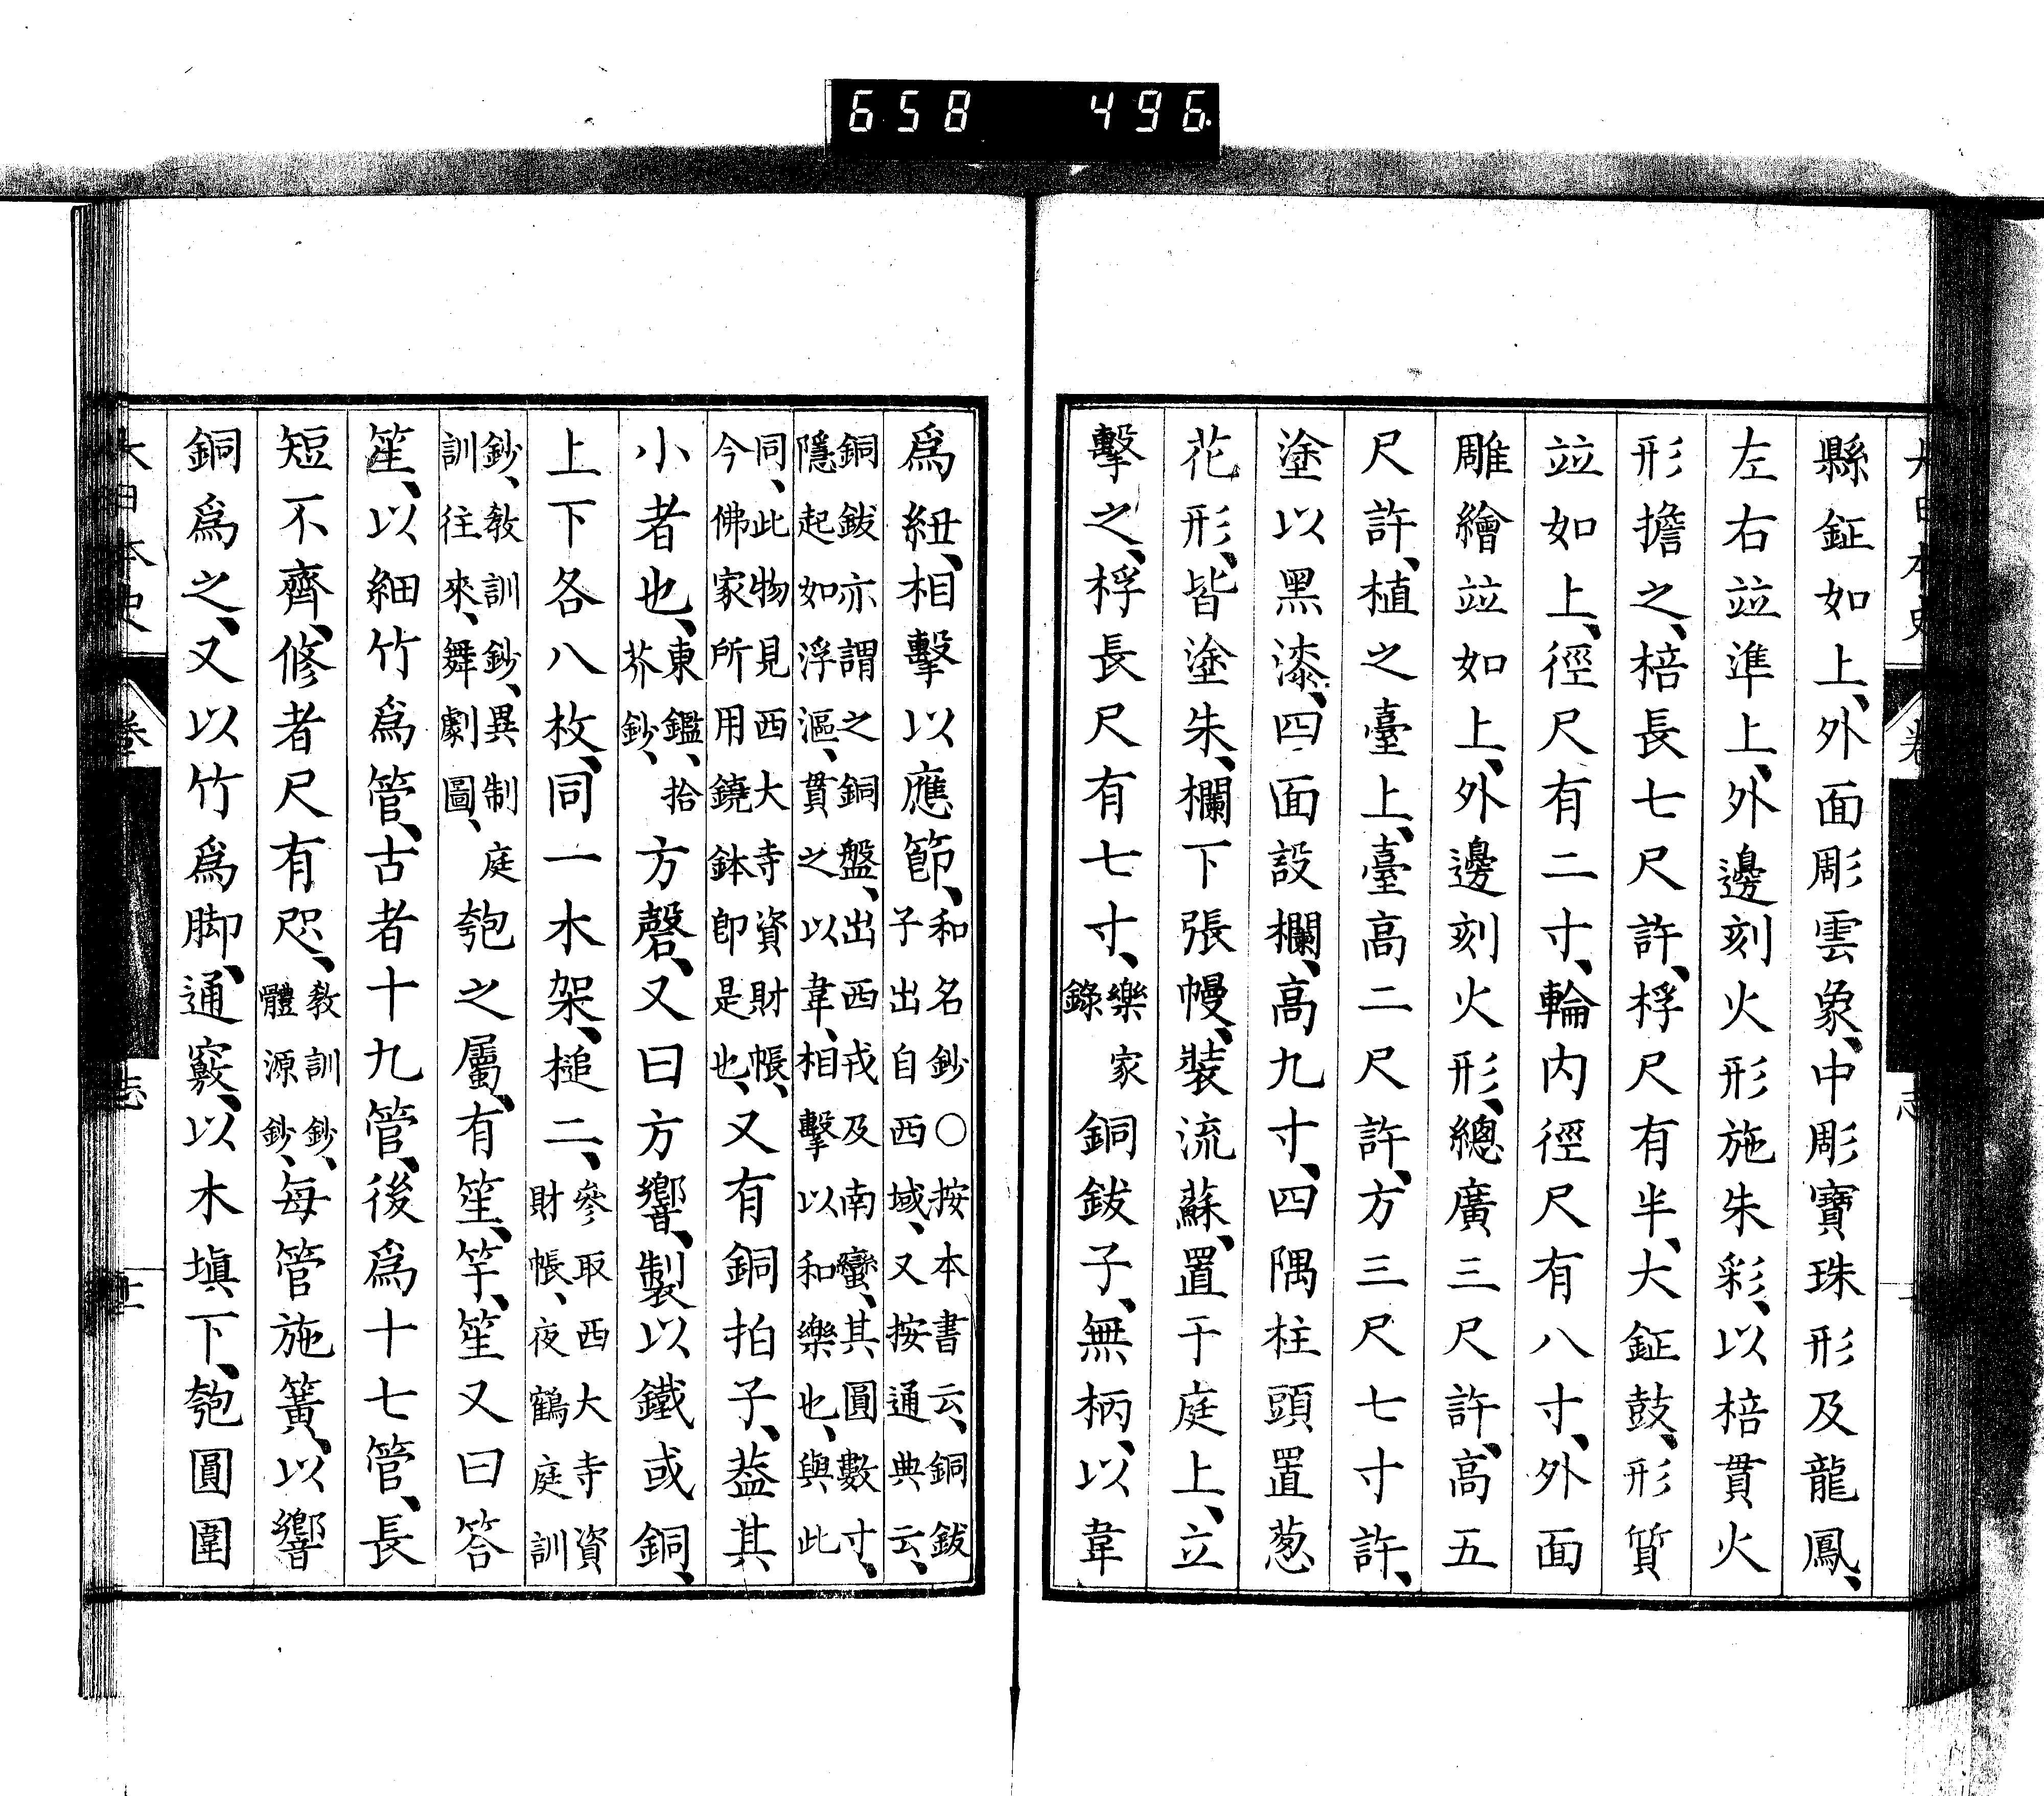 658 496
縣鉦如上、外面彫雲象、中彫寶珠形及龍鳳、
左右竝準上、外邊刻火形施朱彩、以棓貫火
形擔之、棓長七尺許、桴尺有半、大鉦鼓、形質
竝如上、徑尺有二寸、輪内徑尺有八寸、外面
雕繪竝如上、外邊刻火形、總廣三尺許、高五
尺許、植之臺上、臺高二尺許、方三尺七寸許、
塗以黑漆、四面設欄、高九寸、四隅柱頭置葱
花形、皆塗朱、欄下張幔、裝流蘇、置于庭上、立
擊之、桴長尺有七寸、樂家錄 銅鈸子、無柄、以韋
爲紐、相擊以應節、和名鈔○按本書云、銅鈸子出自西域、又按通典云、
銅鈸亦謂之銅盤、出西戎及南蠻、其圓數寸、隱起如浮漚、貫之以韋、相擊以和樂也、與此
同、此物見西大寺資財帳、今佛家所用鐃鉢卽是也、又有銅拍子、葢其
小者也、東鑑、拾芥鈔、方磬、又曰方響、製以鐵或銅、
上下各八枚、同一木架、槌二、參取西大寺資財帳、夜鶴庭訓
鈔、敎訓鈔、異制庭訓往來、舞劇圖、匏之屬、有笙、竽、笙又曰笞
笙、以細竹爲管、古者十九管、後爲十七管、長
短不齊、修者尺有咫、敎訓鈔、體源鈔、每管施簧、以響
銅爲之、又以竹爲脚、通竅、以木塡下、匏圓圍
大日本史 卷 志